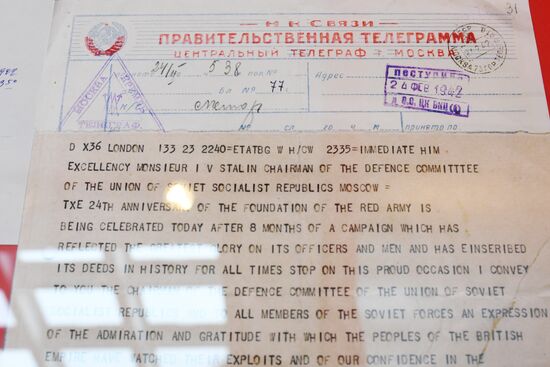 31
Н К СВЯЗИ
ПРАВИТЕЛЬСТВЕННАЯ ТЕЛЕГРАММА
ЦЕНТРАЛЬНЫЙ ТЕЛЕГРАФ г. МОСКВА
24/II 5 38 Адрес
Бл № 77
МОСКВА
ТЕЛЕГРАФ
ПОСТУПИЛО
24 ФЕВ 1942
№ сл. ч. м. принято
D X36 LONDON 133 23 2240=ETATBG W H/CW 2335=IMMEDIATE HIM
EXCELLENCY MONSIEUR I V STALIN CHAIRMAN OF THE DEFENCE COMMITTTEE
OF THE UNION OF SOVIET SOCIALIST REPUBLICS MOSCOW =
TXE 24TH ANNIVERSARY OF THE FOUNDATION OF THE RED ARMY IS
BEING CELEBRATED TODAY AFTER 8 MONTHS OF A CAMPAIGN WHICH HAS
REFLEPTED THE GREATEST GLORY ON ITS OFFICERS AND MEN AND HAS EINSERIBED
ITS DEEDS IN HISTORY FOR ALL TIMES STOP ON THIS PROUD OCCASION I CONVEY
TO YOU THE CHAIRMAN OF THE DEFENCE COMMITTEE OF THE UNION OF SOVIET
SOCIALIST REPUBLICS AND TO ALL MEMBERS OF THE SOVIET FORCES AN EXPRESSION
OF THE ADMIRATION AND GRATITUDE WITH WHICH THE PEOPLES OF THE BRITISH
EMPIRE HAVE WATCHED THEIR EXPLOITS AND OF OUR CONFIDENCE IN THE